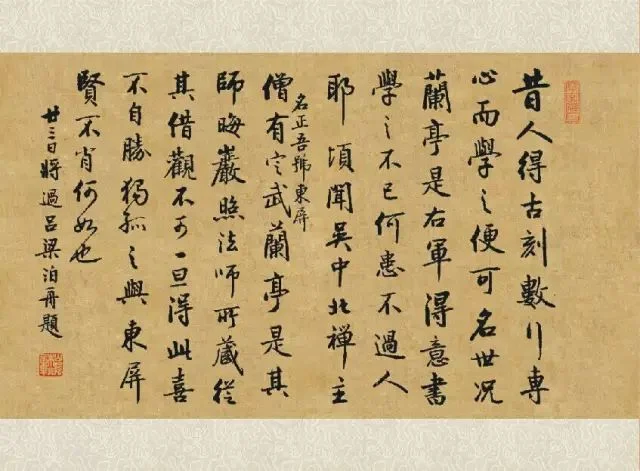 昔人得古刻數行專
心而學之便可名世況
蘭亭是右軍得意書
學之不已何患不過人
耶頃聞吳中北禪主
僧名正吾號東屏有定武蘭亭是其
師晦巖照法師所藏從
其借觀不可一旦得此喜
不自勝獨孤之與東屏
賢不肖何如也
廿三日將過呂梁泊舟題